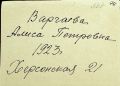 Варгаева
Алиса Петровна
1923
Херсонская 21